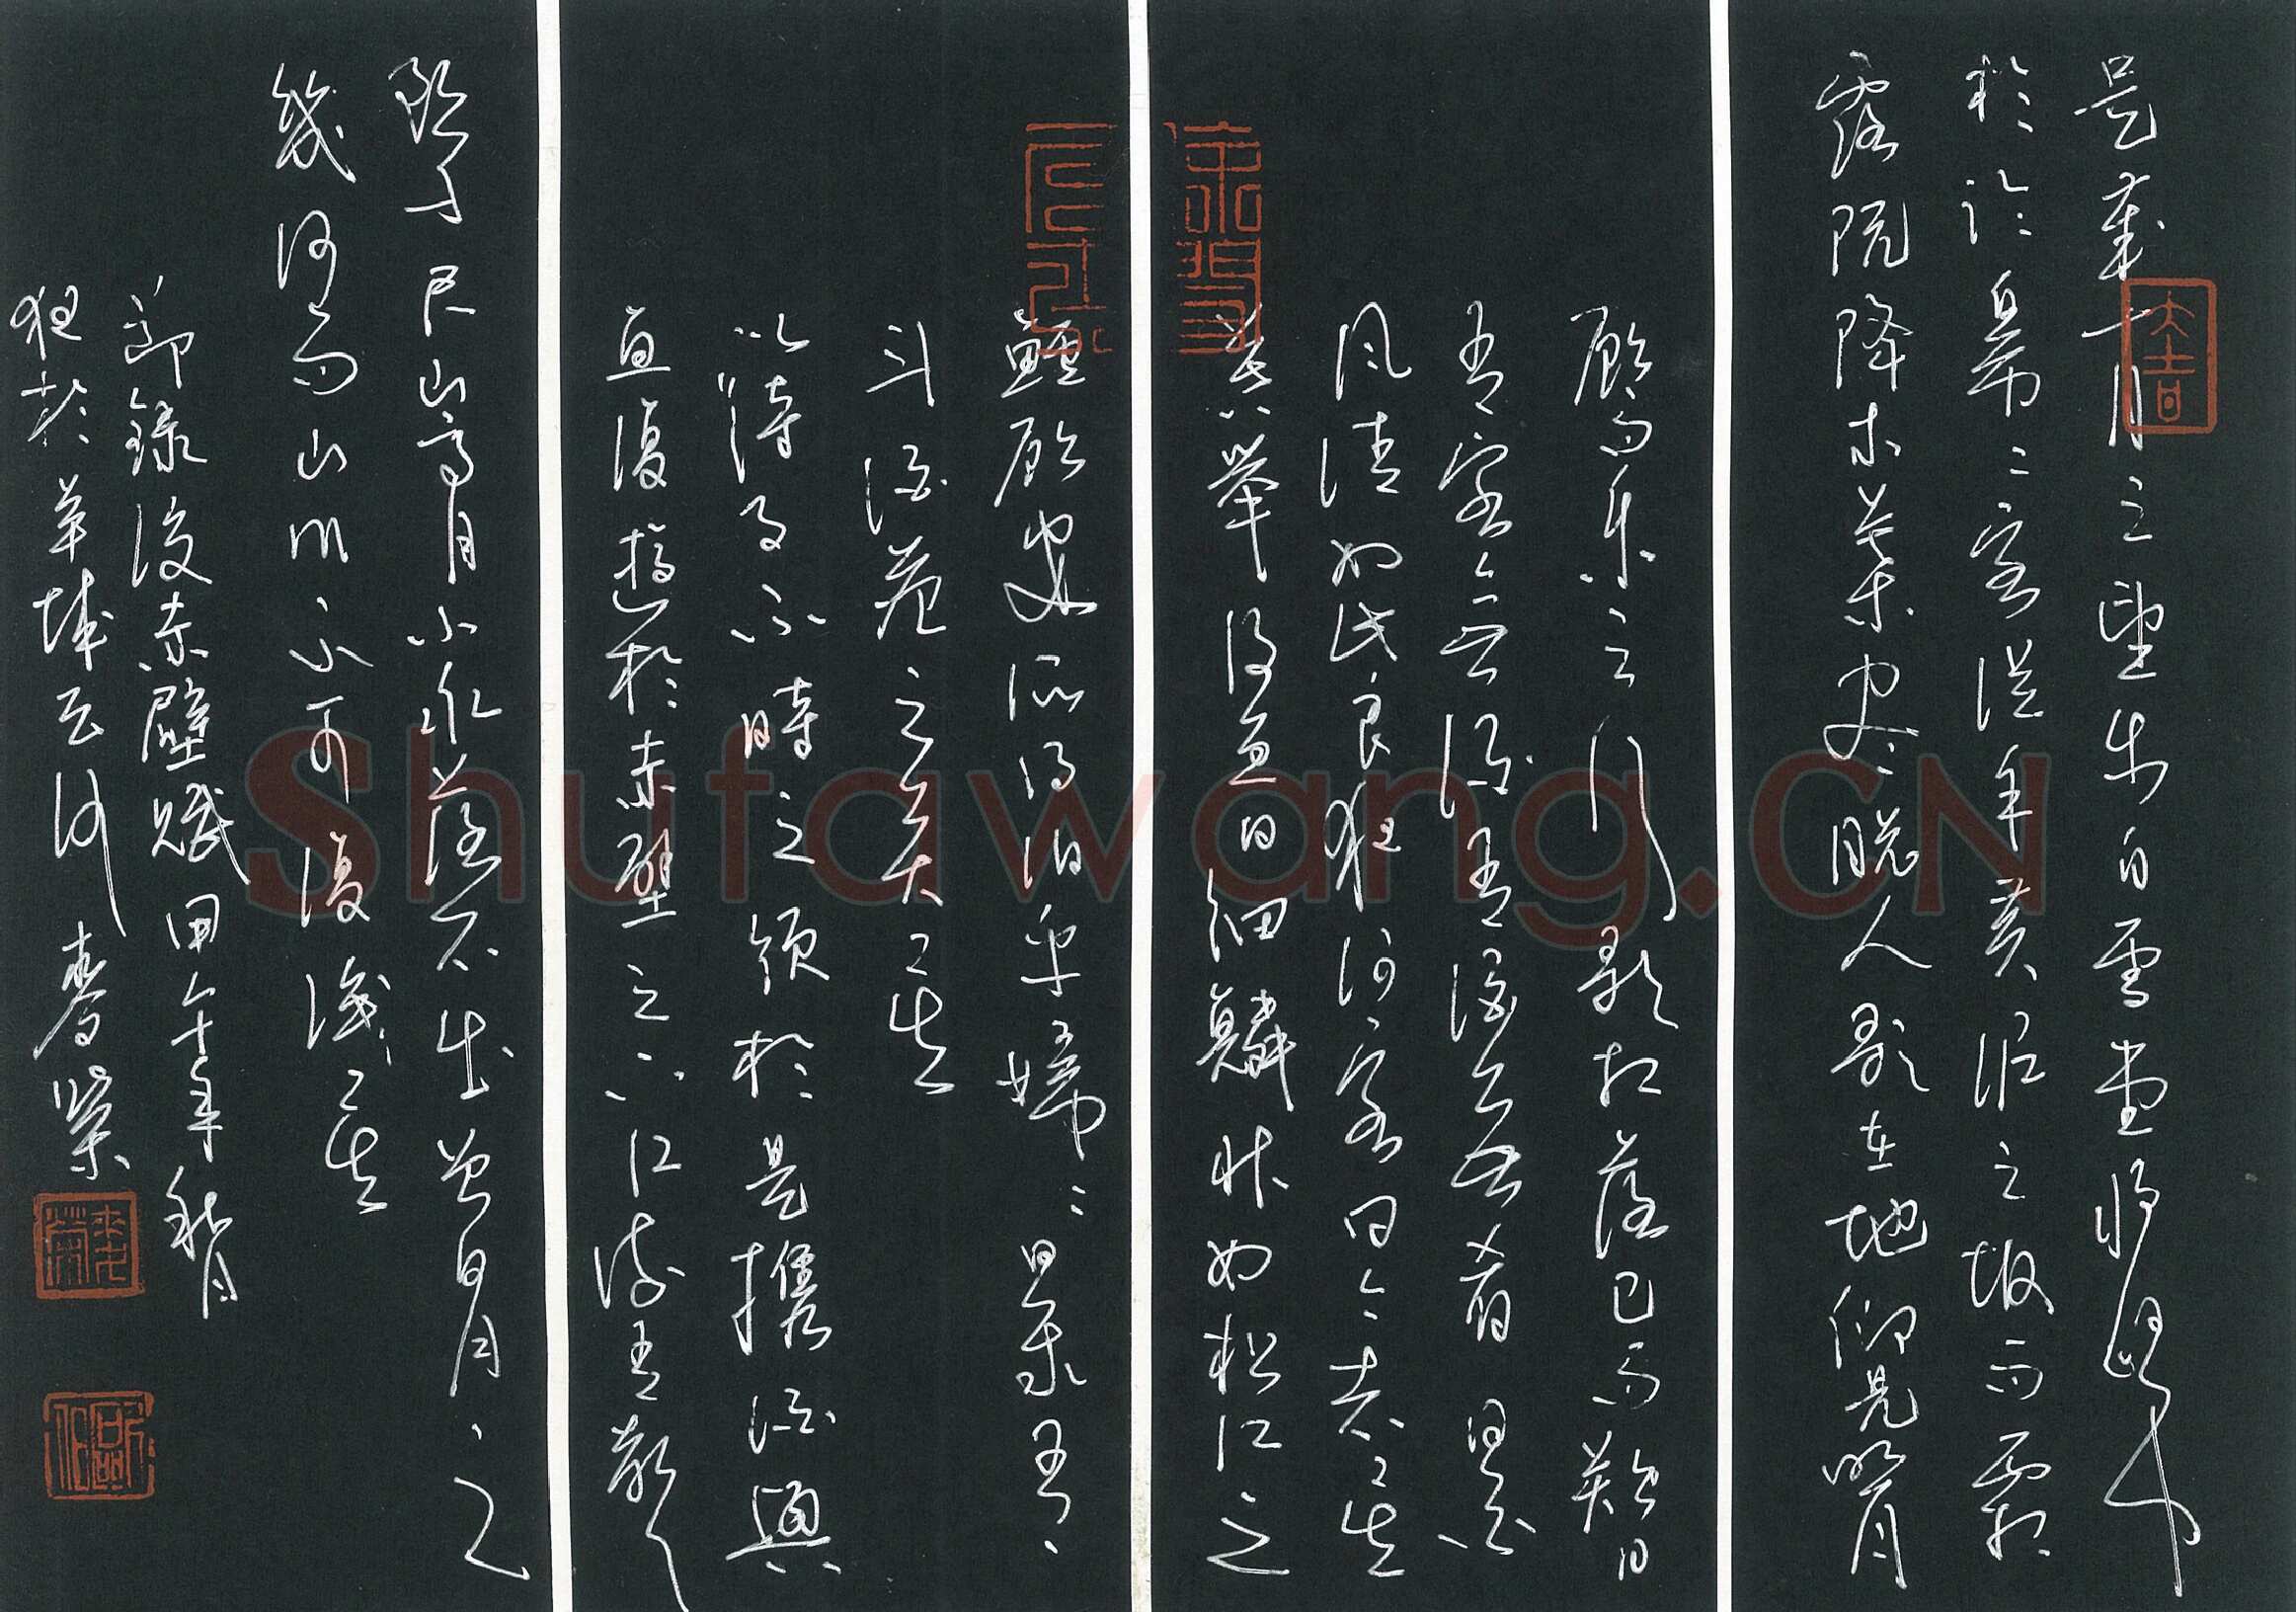 是歲十月之望步自雪堂將歸
於臨皋二客從予黃泥之坂而霜
露既降木葉盡脫人影在地仰見明月
顧而樂之行歌相答已而歎曰
有客無酒有酒無肴月白
風清如此良夜何客曰今者
薄暮舉得魚口細鱗狀如松江之
鱸顧安所得酒乎婦曰我有
斗酒藏之久矣
以待子不時之須於是攜酒與
魚復遊於赤壁之下江流有聲
斷岸尺山高月小水落石出曾日月之
幾何而山川不可復識矣
節錄後赤壁賦甲午年秋月
於羊城
大吉
Shufawang.CN